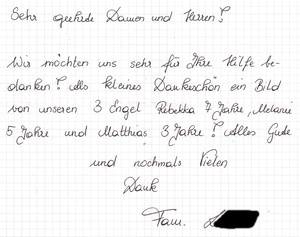 Sehr geehrte Damen und Herren!
Wir möchten uns sehr für Ihre Hilfe be-
danken! Als kleines Dankeschön ein Bild
von unseren 3 Engel Rebekka 7 Jahre, Melanie
5 Jahre und Matthias 3 Jahre! Alles Gute
und nochmals Vielen
Dank
Fam.